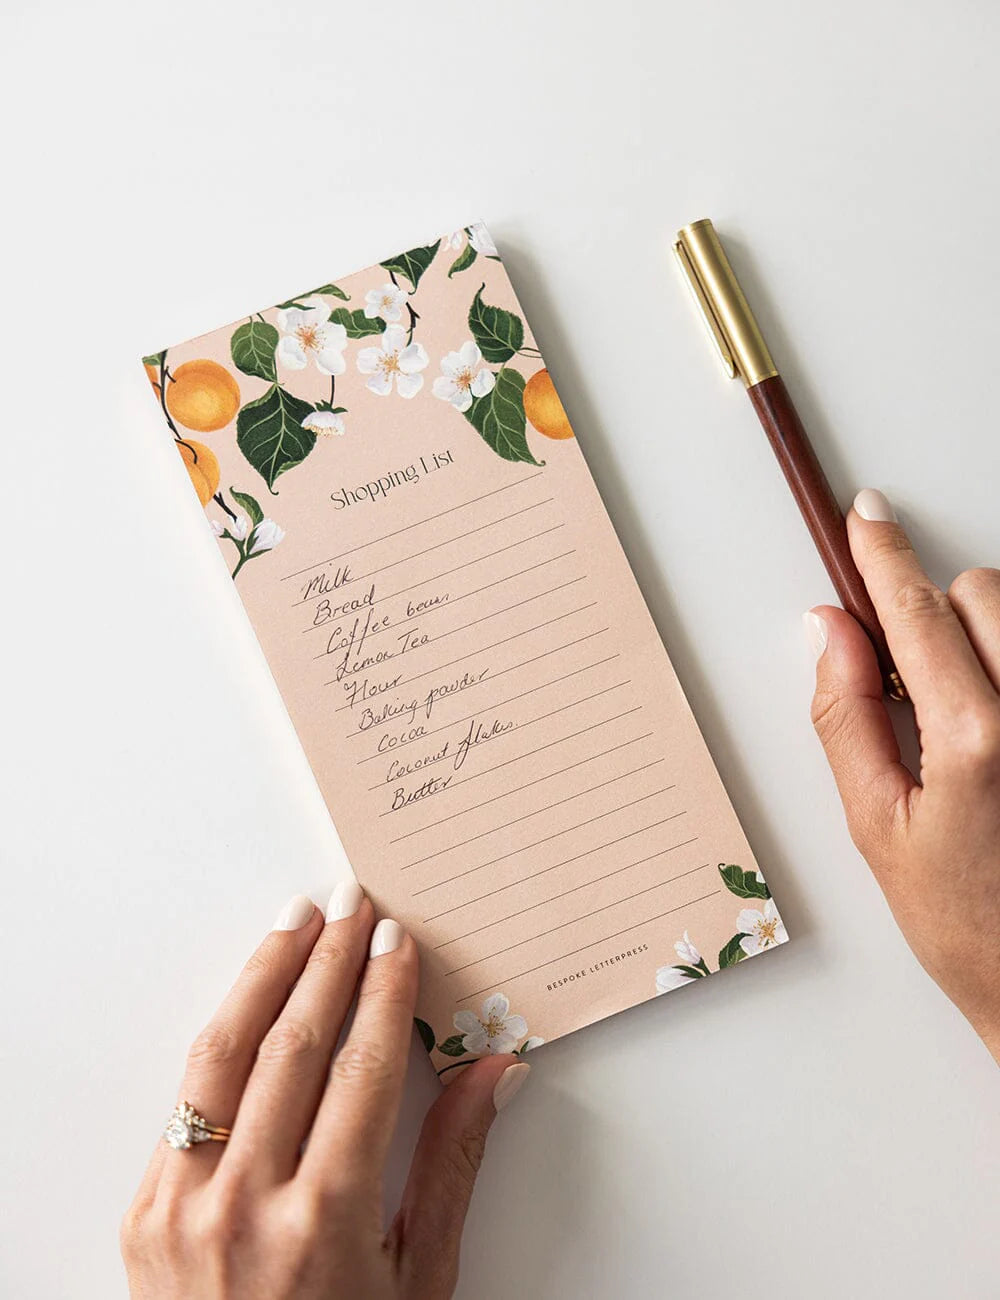 Shopping List
Milk
Bread
Coffee beans
Lemon Tea
Flour
Baking powder
Cocoa
Coconut flakes.
Butter
BESPOKE LETTERPRESS